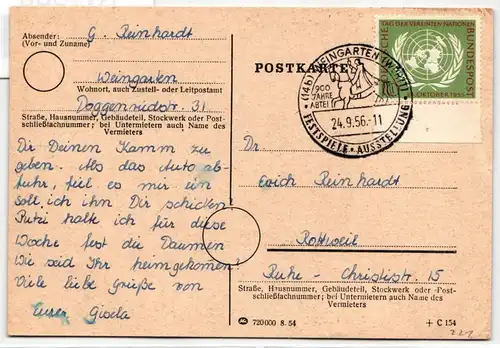 Absender: G. Reinhardt
(Vor- und Zuname)
Weingarten
Wohnort, auch Zustell- oder Leitpostamt
Doggenriedstr. 31
Straße, Hausnummer, Gebäudeteil, Stockwerk oder Post-
schließfachnummer; bei Untermietern auch Name des
Vermieters
Dir Deinen Kamm zu
geben. Als das Auto ab-
fuhr, fiel es mir ein
Soll ich ihn Dir schicken
Putzi halte ich für diese
Woche fest die Daumen
Wie seid Ihr heimgekommen?
Viele liebe Grüße von
Eurer Gisela
POSTKARTE
TAG DER VEREINTEN NATIONEN
DEUTSCHE BUNDESPOST
24. OKTOBER 1955
10
(14b) WEINGARTEN (WÜRTT)
900
JAHRE
ABTEI
24.9.56.-11
FESTSPIELE · AUSSTELLUNG
Dr.
Erich Reinhardt
Rottweil
Ruhe-Christistr. 15
Straße, Hausnummer, Gebäudeteil, Stockwerk oder Post-
schließfachnummer; bei Untermietern auch Name des
Vermieters
720000 8.54
+ C 154